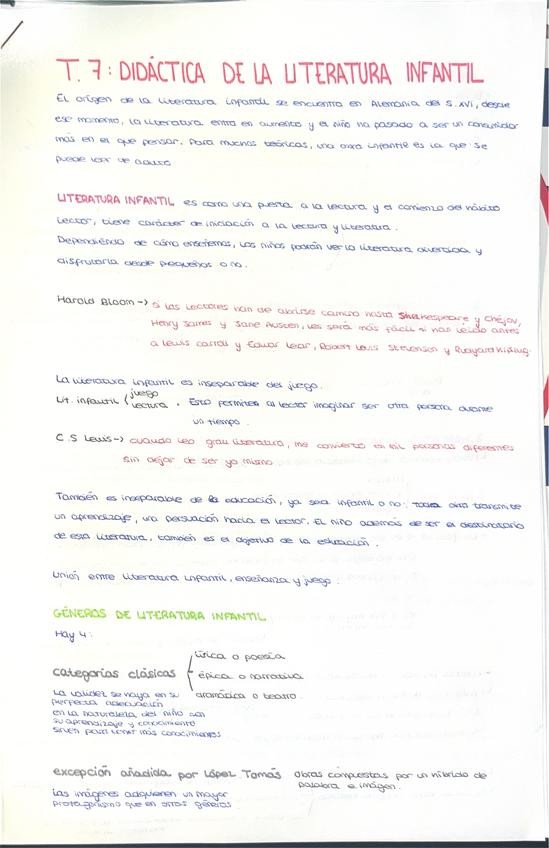 T. 7: DIDÁCTICA DE LA LITERATURA INFANTIL
El origen de la literatura infantil se encuentra en Alemania del S. XVI, desde
ese momento, la literatura entra en aumento y el niño ha pasado a ser un consumidor
más en el que pensar. Para muchos teóricos, una obra infantil es la que se
puede leer de adulto
LITERATURA INFANTIL es como una puerta a la lectura y el comienzo del hábito
lector, tiene carácter de iniciación a la lectura y literatura.
Dependiendo de cómo enseñemos, los niños podrán ver la literatura divertida y
disfrutarla desde pequeños o no.
Harold Bloom -> Si los lectores han de abrirse camino hasta Shakespeare y Chéjov,
Henry James y Jane Austen, les será más fácil si han leído antes
a Lewis Carroll y Edwar Lear, Robert Louis Stevenson y Rudyard Kipling.
La literatura infantil es inseparable del juego.
Lit. infantil ( juego
lectura . Esto permite al lector imaginar ser otra persona durante
un tiempo.
C.S Lewis -> cuando leo gran literatura, me convierto en mil personas diferentes
sin dejar de ser yo mismo.
También es inseparable de la educación, ya sea infantil o no. Toda obra transmite
un aprendizaje, una persuasión hacia el lector. El niño además de ser el destinatario
de esta literatura, también es el objetivo de la educación.
Unión entre literatura infantil, enseñanza y juego.
GÉNEROS DE LITERATURA INFANTIL
Hay 4:
categorías clásicas { lírica o poesía
épica o narrativa
dramática o teatro.
La validez se haya en su
perfecta adecuación
en la naturaleza del niño con
su aprendizaje y conocimiento
sirven para tener más conocimientos
excepción añadida por López Tamés obras compuestas por un híbrido de
palabra e imagen.
Las imágenes adquieren un mayor
protagonismo que en otros géneros